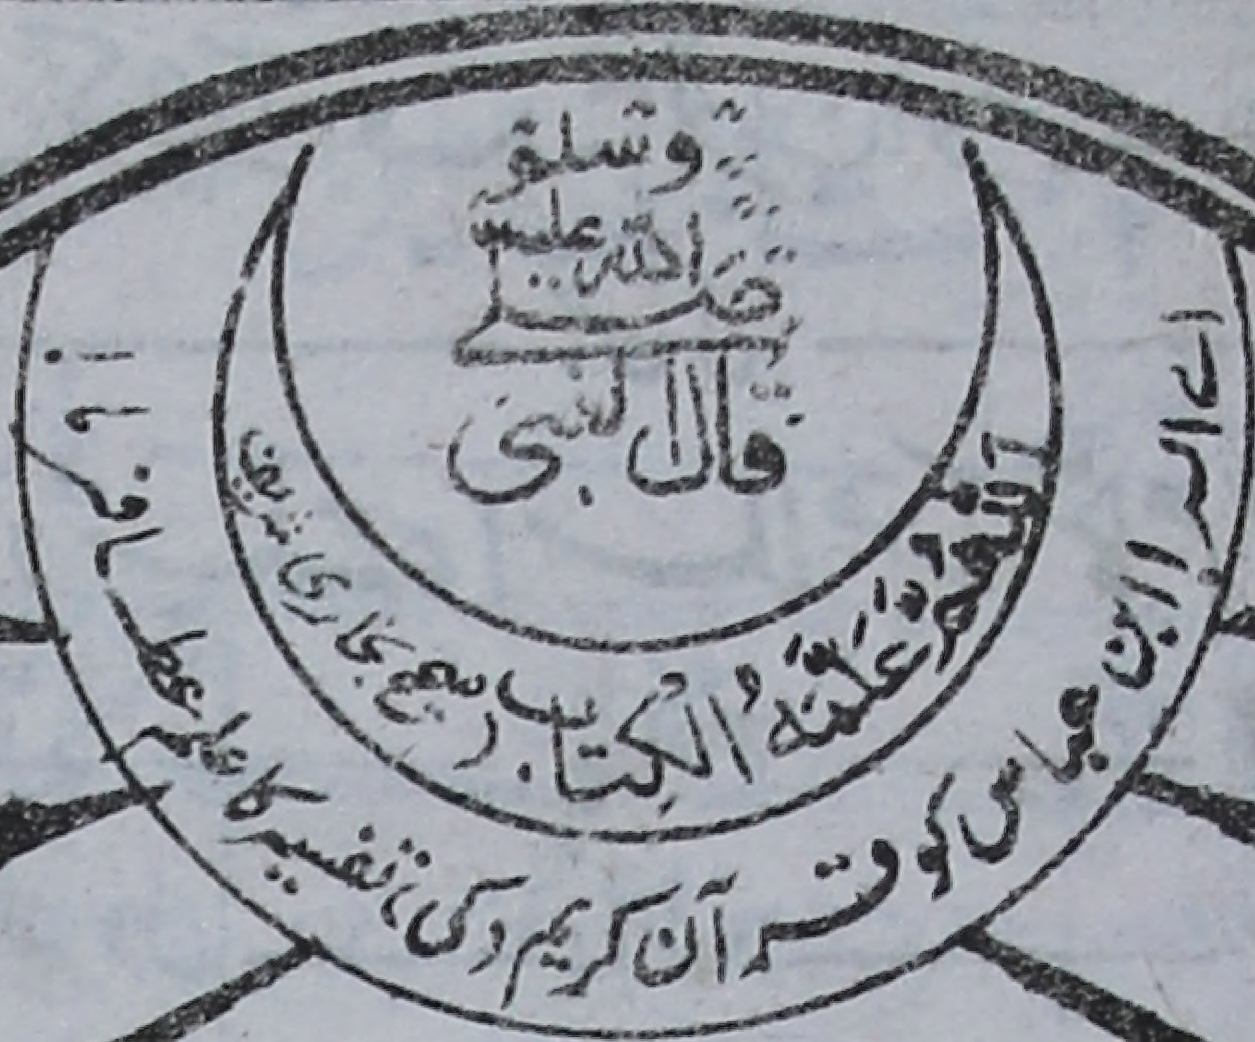 قال النبی
صلی اللہ علیہ
وسلم
اَللّٰهُمَّ عَلِّمْهُ الْکِتَابَ (صحیح بخاری شریف)
اے اللہ ابن عباس کو قرآن کریم (کی تفسیر) کا علم عطا فرما!